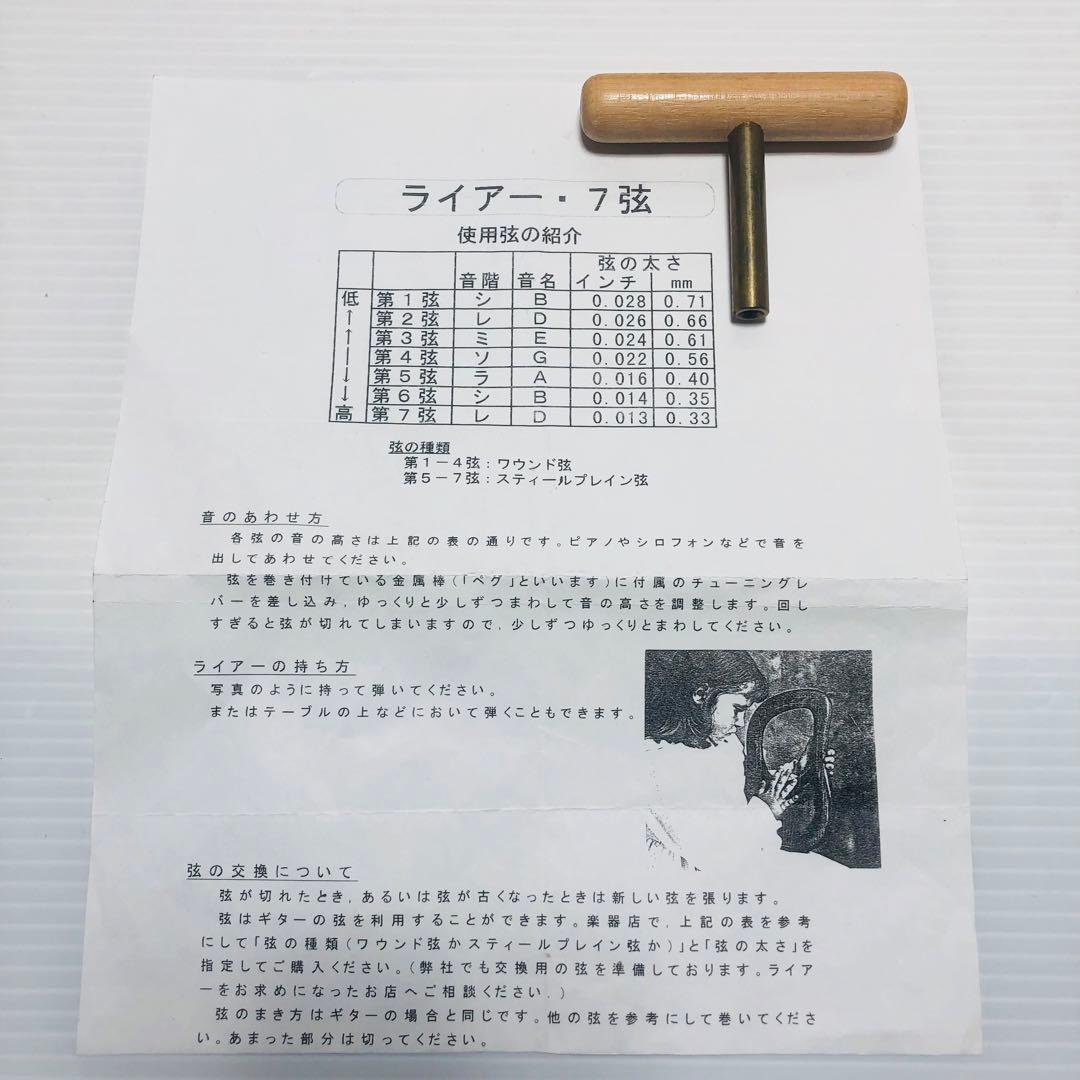 ライアー・7弦
使用弦の紹介
弦の太さ
音階 音名 インチ mm
低 第1弦 シ B 0.028 0.71
↑ 第2弦 レ D 0.026 0.66
↑ 第3弦 ミ E 0.024 0.61
| 第4弦 ソ G 0.022 0.56
↓ 第5弦 ラ A 0.016 0.40
↓ 第6弦 シ B 0.014 0.35
高 第7弦 レ D 0.013 0.33
弦の種類
第1-4弦:ワウンド弦
第5-7弦:スティールプレイン弦
音のあわせ方
各弦の音の高さは上記の表の通りです。ピアノやシロフォンなどで音を
出してあわせてください。
弦を巻き付けている金属棒(「ペグ」といいます)に付属のチューニングレ
バーを差し込み,ゆっくりと少しずつまわして音の高さを調整します。回し
すぎると弦が切れてしまいますので,少しずつゆっくりとまわしてください。
ライアーの持ち方
写真のように持って弾いてください。
またはテーブルの上などにおいて弾くこともできます。
弦の交換について
弦が切れたとき,あるいは弦が古くなったときは新しい弦を張ります。
弦はギターの弦を利用することができます。楽器店で,上記の表を参考
にして「弦の種類(ワウンド弦かスティールプレイン弦か)」と「弦の太さ」を
指定してご購入ください。(弊社でも交換用の弦を準備しております。ライア
ーをお求めになったお店へご相談ください.)
弦のまき方はギターの場合と同じです。他の弦を参考にして巻いてくださ
い。あまった部分は切ってください。